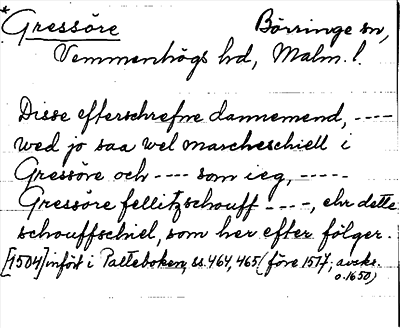 * Gressöre Börringe sn,
Vemmenhögs hd, Malm. l.
Disse efferschrefne dannemend, ----
wed jo saa wel marscheschiell i
Gressöre och ---- som ieg, -----
Gressöre fellitzschouff ----, ehr dette
schouffschiel, som her efter fölger.
[1504] infört i Palteboken, ss. 464, 465 (före 1517; avskr.
o. 1650)